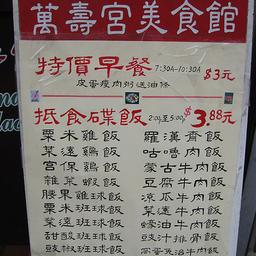 萬壽宮美食館
特價早餐 7:30A-10:30A $3元
皮蛋瘦肉粥送油條
抵食碟飯 2:00至5:00 $3.88元
粟米雞飯
菜遠雞飯
宮保雞飯
雜菜蝦飯
腰果雞球飯
粟米班球飯
菜遠班球飯
甜酸班球飯
豉椒班球飯
羅漢齋飯
咕嚕肉飯
蒙古牛肉飯
豆腐牛肉飯
涼瓜牛肉飯
菜遠牛肉飯
豉汁排骨飯